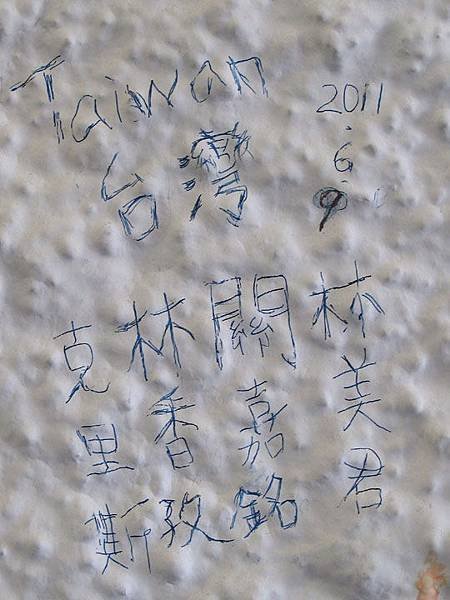 Taiwan
台灣
2011
.6.
9
林美君
關嘉銘
林香敦
克里斯